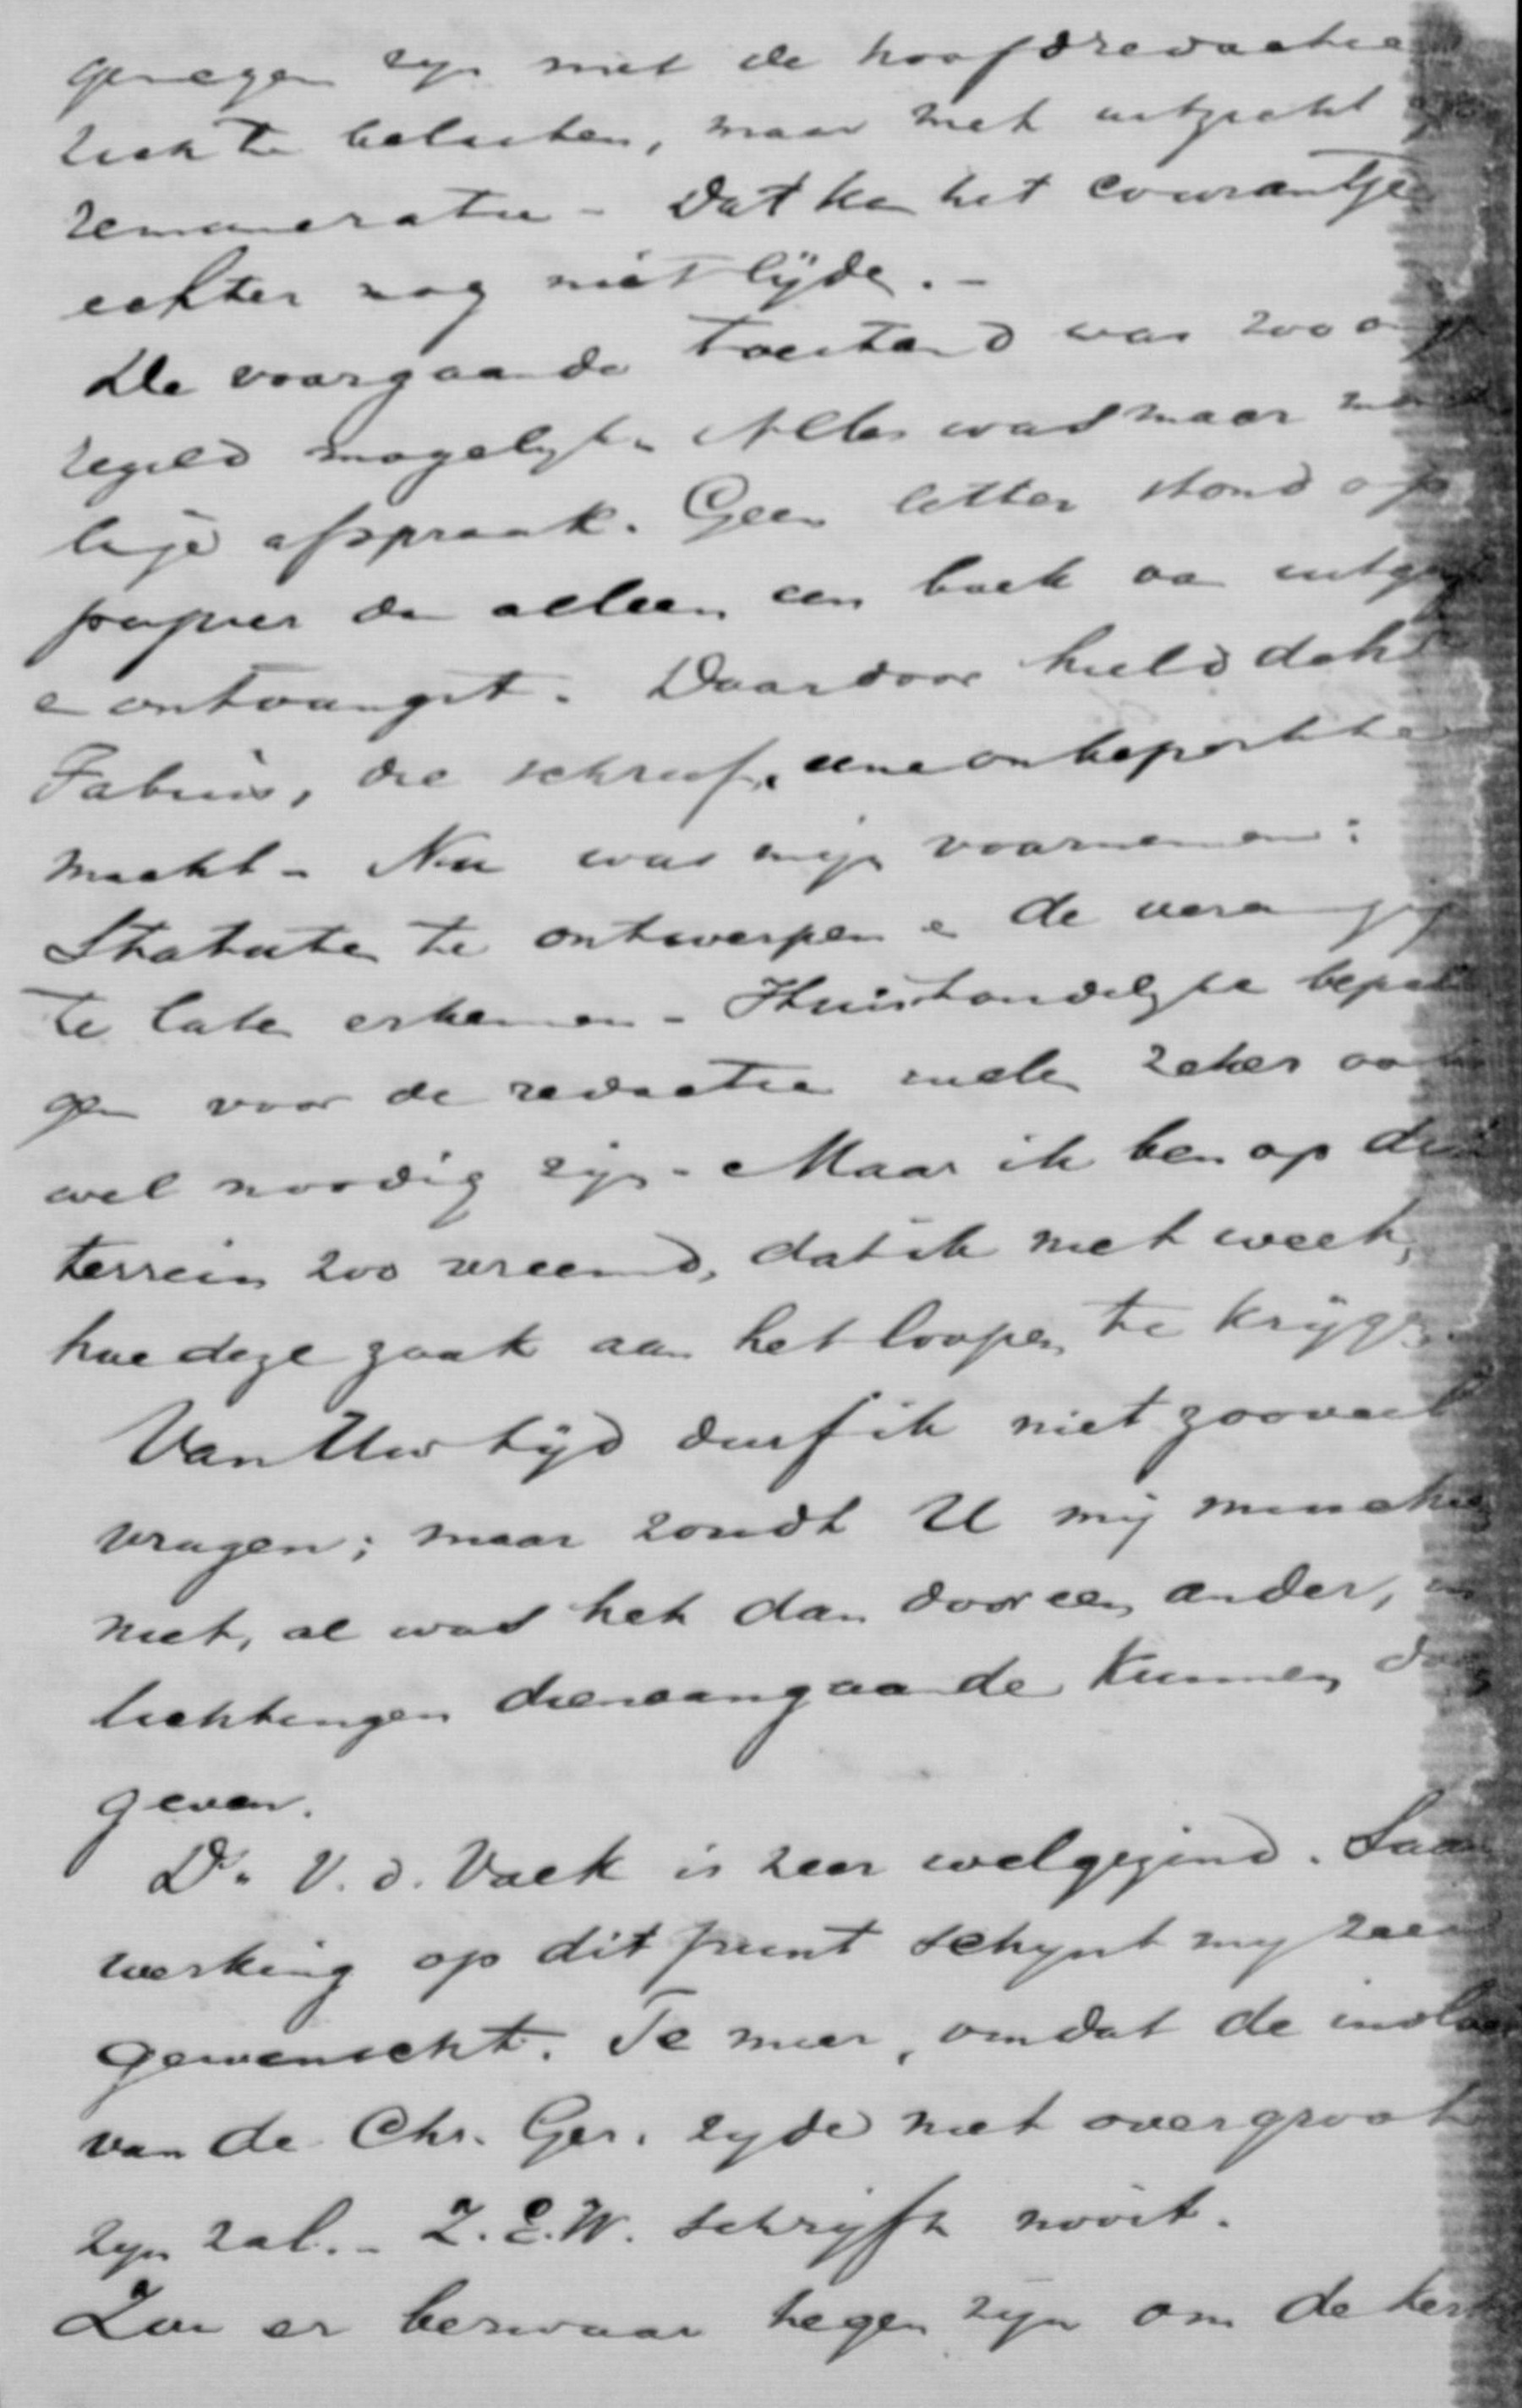 genegen zijn met de hoofdredactie
zich te belasten, maar met uitzicht op
remuneratie - Dat kan het courantje
echter nog niet lijden. -
De voorgaande toestand was zoo onge
regeld mogelijk. Alles was maar monde
linge afspraak. Geen letter stond op
papier dan alleen een boek van uitgaaf
en ontvangst. Daardoor hield dokt
Fabius, die schreef, eene onbeperkte
macht - Nu was mijn voornemen:
Statuten te ontwerpen en de vereeniging
te laten erkennen - Huishoudelijke bepalin
gen voor de redactie zullen zeker ook
wel noodig zijn - Maar ik ben op dit
terrein zoo vreemd, dat ik niet weet,
hoe deze zaak aan het loopen te krijgen
Van Uw tijd durf ik niet zooveel
vragen; maar zoudt U mij misschien
niet, al was het dan door een ander, in
lichtingen dienaangaande kunnen doen
geven.
Ds. V. d. Valk is zeer welgezind. Saam
werking op dit punt schijnt mij zeer
gewenscht. Te meer, omdat de invloed
van de Chr. Ger. zijde niet overgroot
zijn zal. - Z.E.W. schrijft nooit.
Zou er bezwaar tegen zijn om de kerk